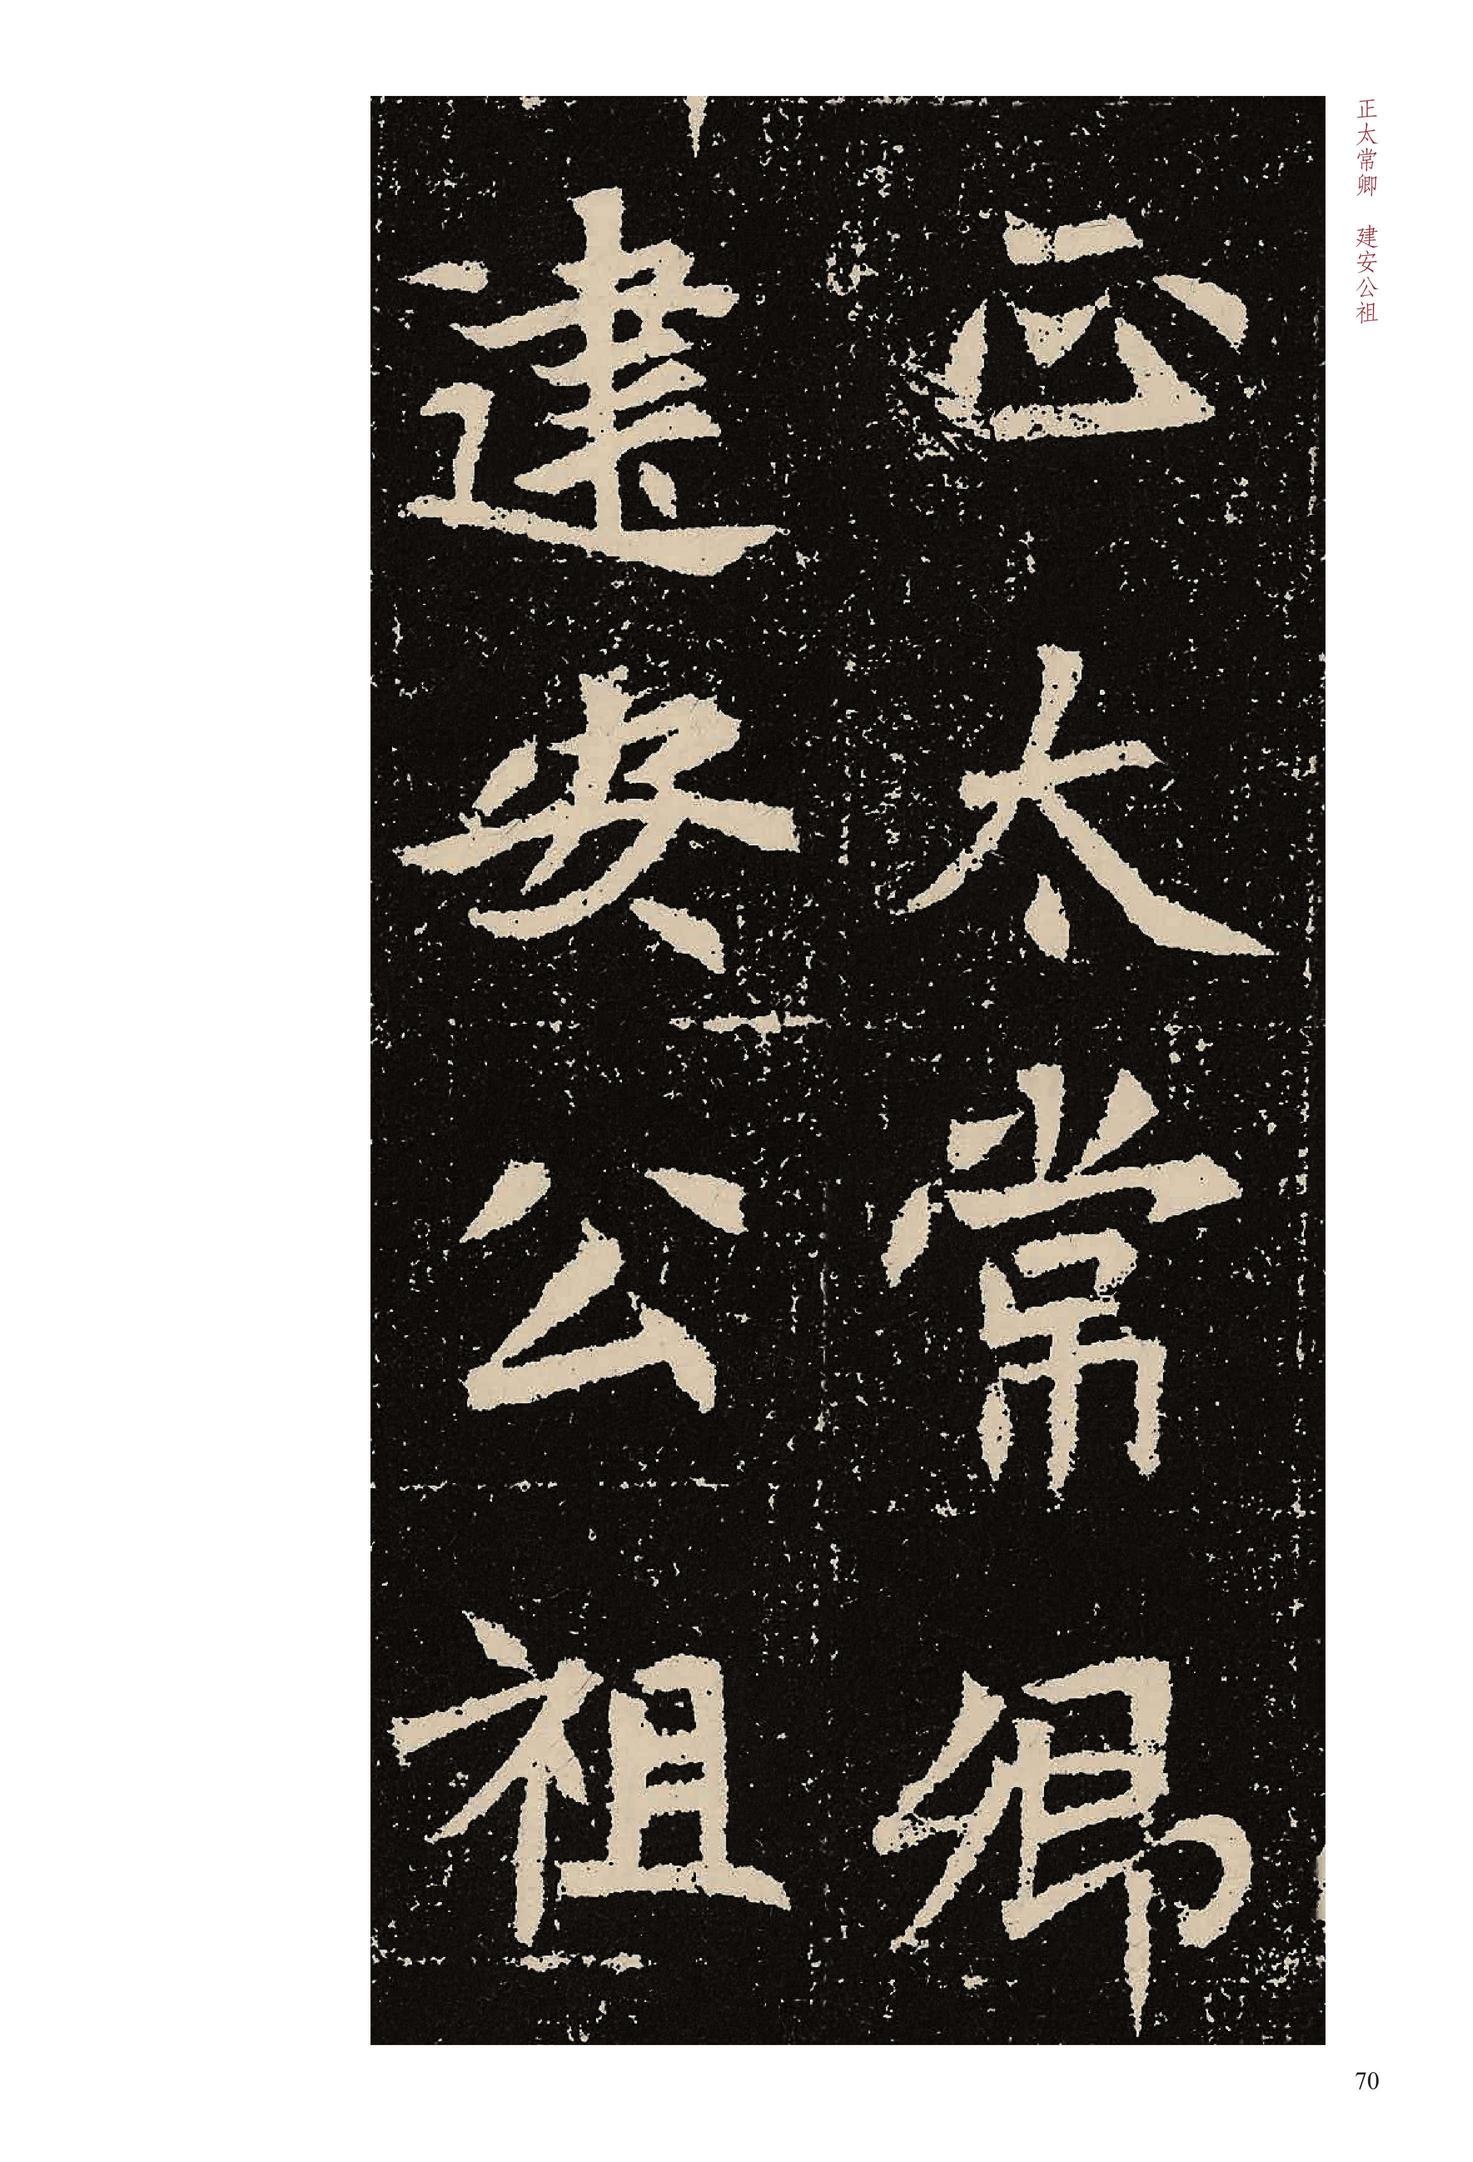 正太常卿
建安公祖
正太常卿　建安公祖
70